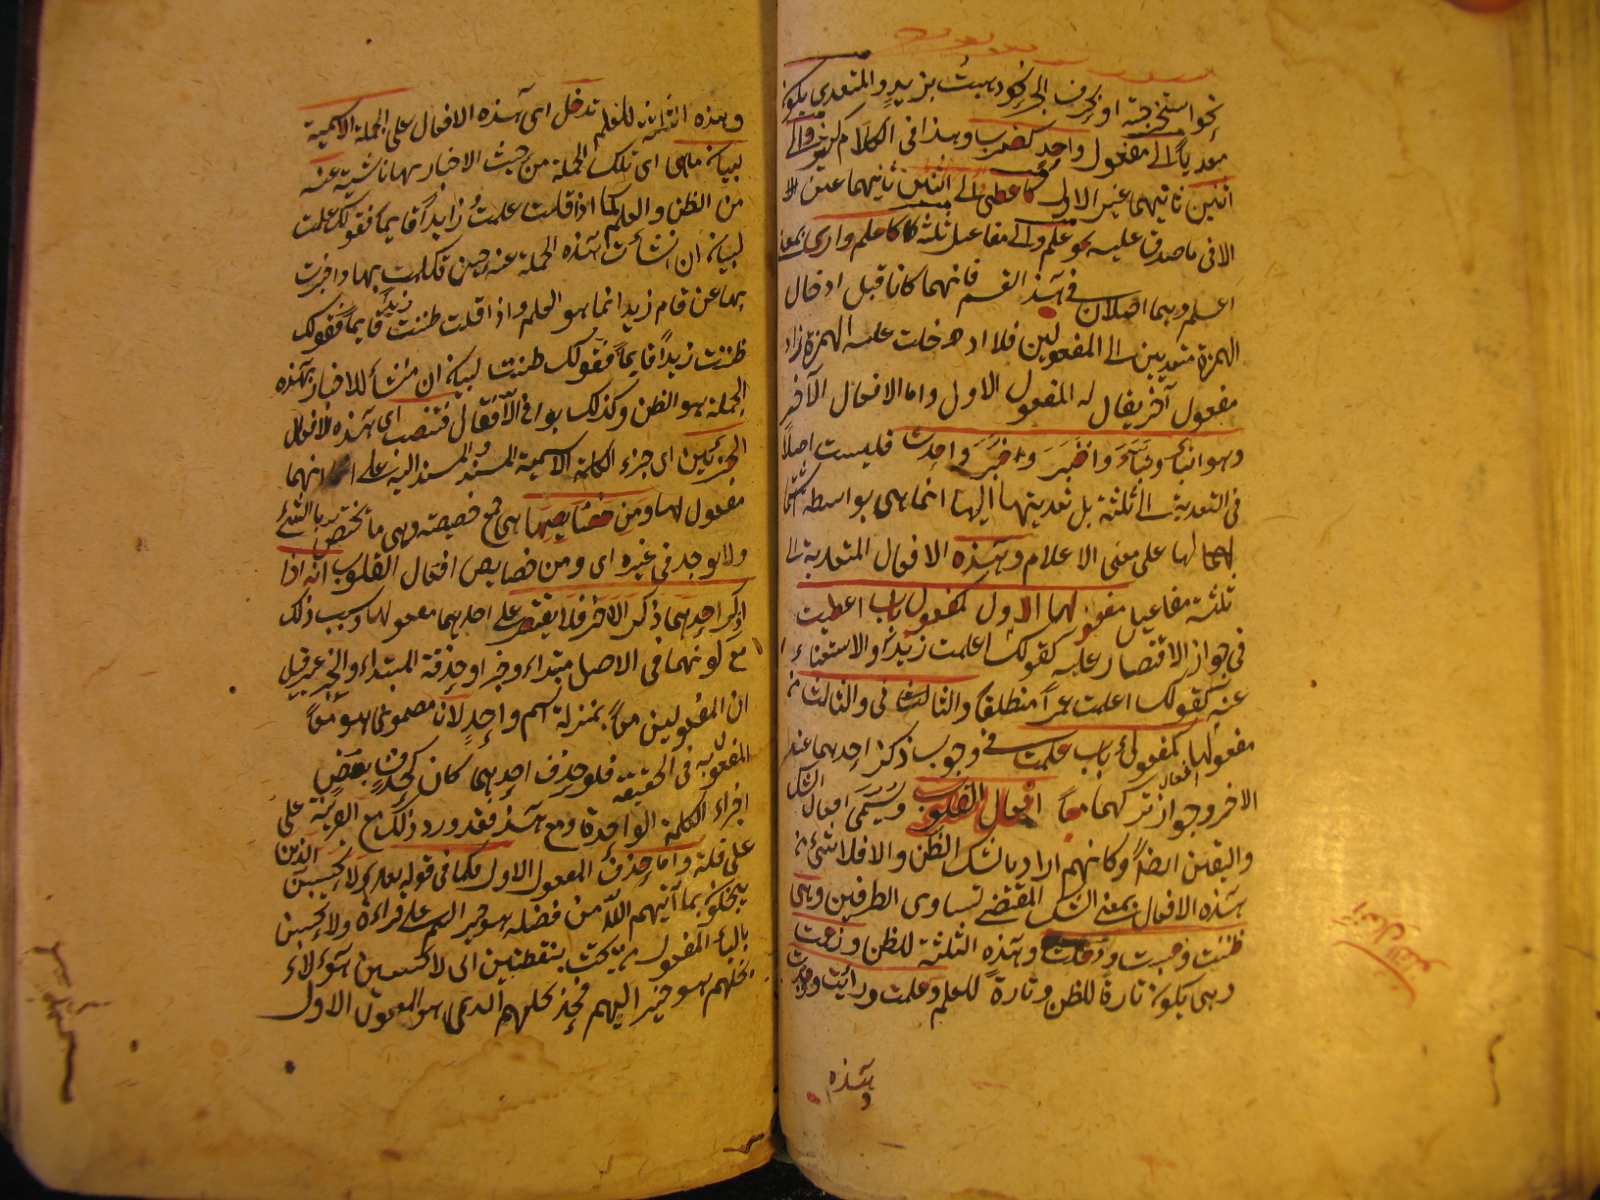 نحو استخرجته او بحرف الجر نحو ذهبت بزيد والمتعدي يكون
معديا الى مفعول واحد كضرب وهذا في الكلام كثير والى
اثنين ثانيهما غير الاول كاعطى والى اثنين ثانيهما عين
الاول فى ما صدق عليه نحو علم والى مفاعيل ثلثة كاعلم وارى بمعنى
اعلم وهما اصلان في هذا القسم فانهما كانا قبل ادخال
الهمزة متعديين الى المفعولين فلما ادخلت عليه الهمزة زاد
مفعول آخر يقال له المفعول الاول واما الافعال الآخر
وهو انبأ ونبأ واخبر وخبر وحدث فليست اصلا
فى التعدية الى ثلثة بل تعديتها اليها انما هى بواسطة
لها على معنى الاعلام وهذه الافعال المتعدية الى
ثلثة مفاعيل مفعولها الاول كمفعول باب اعطيت
فى جواز الاقتصار عليه كقولك اعلمت زيدا والاستغناء
عنه كقولك اعلمت عمرا منطلقا والثانى والثالث من
مفعولها كمفعولى باب علمت فى وجوب ذكر احدهما عند
الاخر وجواز تركهما معا افعال القلوب وتسمى افعال الشك
واليقين ايضا وكانهم ارادوا بالشك الظن والا فلا شئ من
هذه الافعال بمعنى الشك المقتضى تساوى الطرفين وهى
ظننت وحسبت وخلت وهذه الثلثة للظن وزعمت
وهى يكون تارة للظن وتارة للعلم وعلمت ورأيت ووجدت
وهذه
وهذه الثلثة للعلم تدخل اى هذه الافعال على الجملة الاسمية
لبيان ما هى اى تلك الجملة من حيث الاخبار بها ناشية عنه
من الظن والعلم كما اذا قلت علمت زايدا قايما فقولك علمت
لبيان ان انشأت هذه الجملة عنه حين تكلمت بها واخبرت
بها عن قيام زيد انما هو العلم واذا قلت ظننت زيدا قايما فقولك
ظننت زيدا قايما فقولك ظننت لبيان ان منشأ للاخبار بهذه
الجملة هو الظن وكذلك بواقى الافعال فتنصب اى هذه الافعال
الجزئين اى جزء الجملة الاسمية المسند والمسند اليه على انهما
مفعول لها ومن خصايصها هى جمع خصيصة وهى ما تختص بالشئ
ولا يوجد فى غيره اى ومن خصايص افعال القلوب انه اذا
ذكر احدهما ذكر الاخر فلا يقتصر على احدهما مفعولها وسبب ذلك
مع كونهما فى الاصل مبتداء وخبر او حذفة المبتداء والخبر غير قليل
ان المفعولين معا بمنزلة اسم واحد لان مضمونهما هو معا
المفعول به فى الحقيقة فلو حذف احدهما كان كحذف بعض
اجزاء الكلمة الواحدة ومع هذا فقد ورد ذلك مع القرينة على
على قلة واما حذف المفعول الاول فكما فى قوله تعالى ولا يحسبن الذين
يبخلون بما آتيهم الله من فضله هو خيرا لهم على قراءة ولا يحسبن
بالياء المفعول من تحت بنقطتين اى لا يحسبن هؤلاء
بخلهم هو خيرا لهم فحذف بخلهم الذى هو المفعول الاول